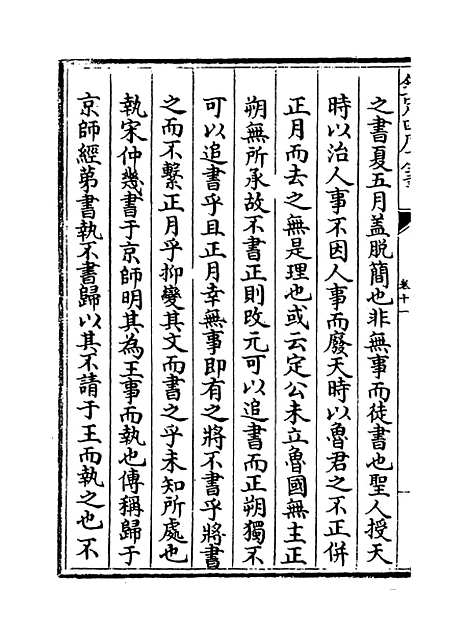 之書夏五月盖脱簡也非無事而徒書也聖人授天
時以治人事不因人事而廢天時以魯君之不正併
正月而去之無是理也或云定公未立魯國無主正
朔無所承故不書正則改元可以追書而正朔獨不
可以追書乎且正月幸無事即有之將不書乎將書
之而不繫正月乎抑變其文而書之乎未知所處也
執宋仲幾書于京師明其為王事而執也傳稱歸于
京師經第書執不書歸以其不請于王而執之也不
卷十一